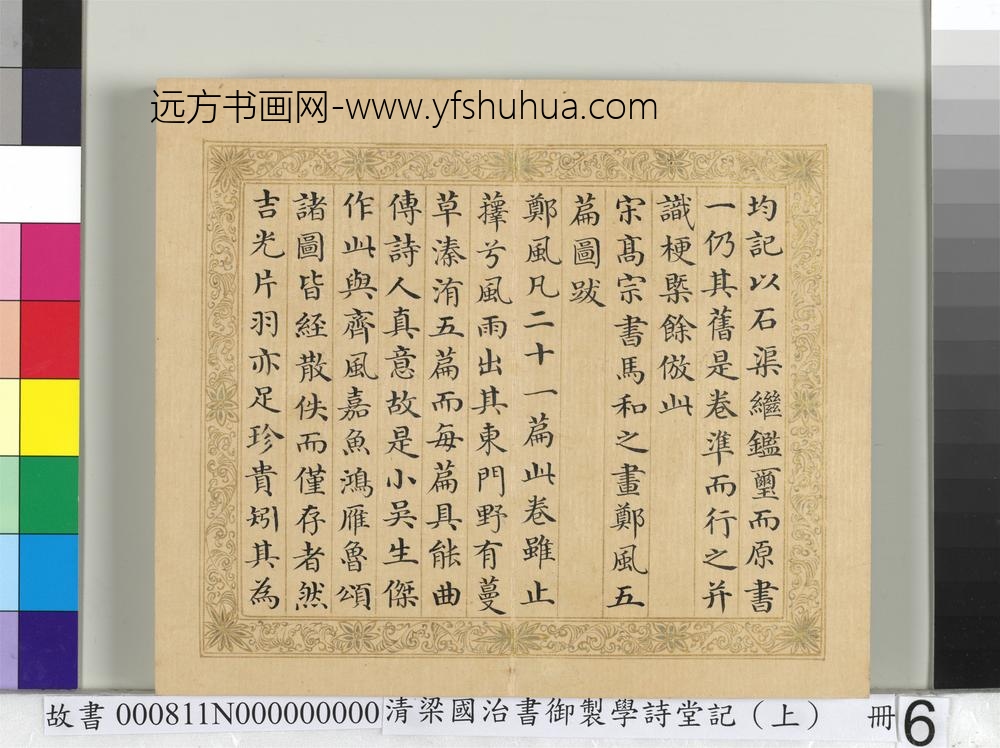 远方书画网-www.yfshuhua.com
均記以石渠繼鑑璽而原書
一仍其舊是卷準而行之并
識梗槩餘倣此
宋髙宗書馬和之畫鄭風五
篇圖跋
鄭風凡二十一篇此卷雖止
蘀兮風雨出其東門野有蔓
草溱洧五篇而每篇具能曲
傳詩人真意故是小吳生傑
作此與齊風嘉魚鴻雁魯頌
諸圖皆経散佚而僅存者然
吉光片羽亦足珍貴矧其為
故書 000811N000000000 清梁國治書御製學詩堂記（上） 冊 6